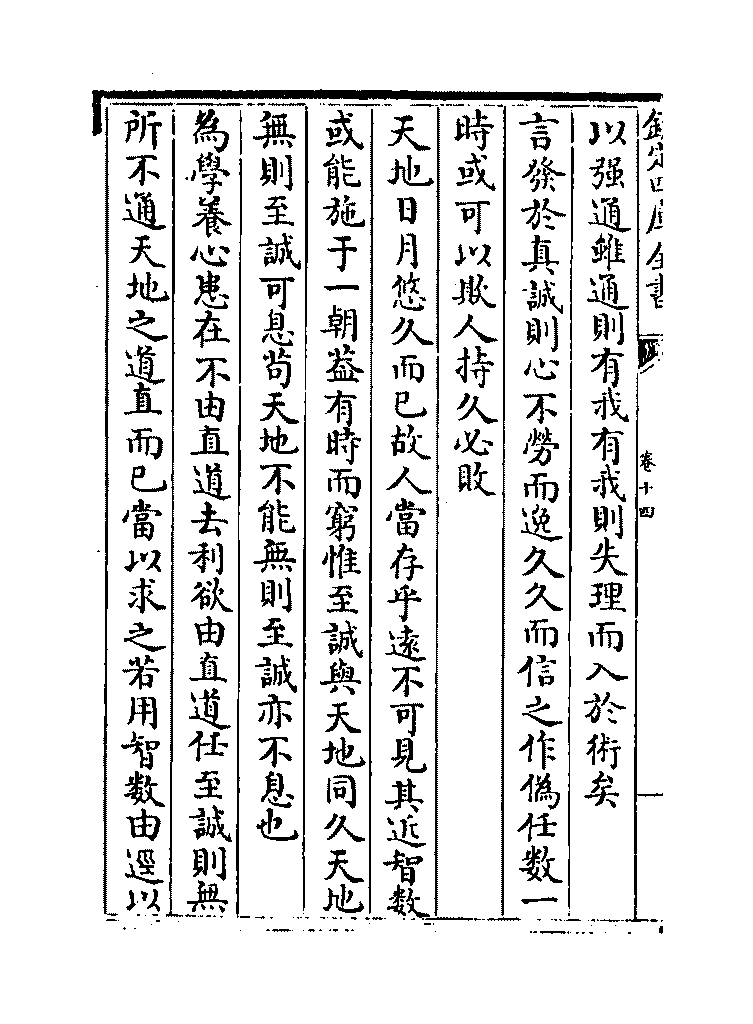 欽定四庫全書
卷十四
以强通雖通則有我有我則失理而入於術矣
言發於真誠則心不勞而逸久久而信之作偽任數一
時或可以欺人持久必敗
天地日月悠久而已故人當存乎遠不可見其近智數
或能施于一朝葢有時而窮惟至誠與天地同久天地
無則至誠可息茍天地不能無則至誠亦不息也
為學養心患在不由直道去利欲由直道任至誠則無
所不通天地之道直而已當以求之若用智數由逕以